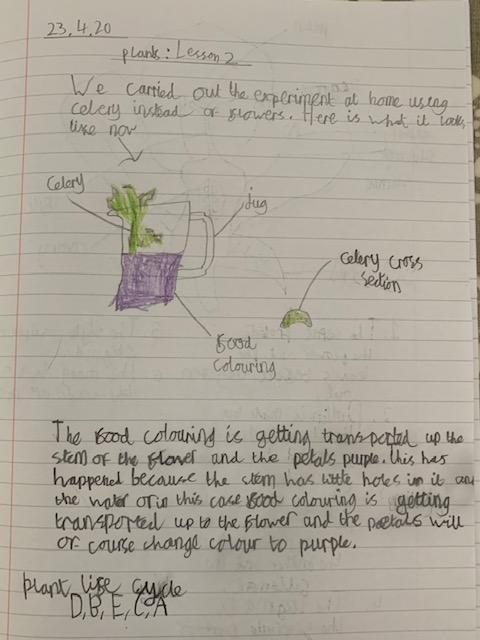 23.4.20
plants: Lesson 2
We carried out the experiment at home using
celery instead of flowers. Here is what it looks
like now
Celery
Jug
celery cross
section
Food
Colouring
The food colouring is getting transported up the
stem of the flower and the petals purple. this has
happened because the stem has little holes in it and
the water or in this case food colouring is getting
transported up to the flower and the paetals will
of course change colour to purple.
plant life cycle
D, B, E, C, A